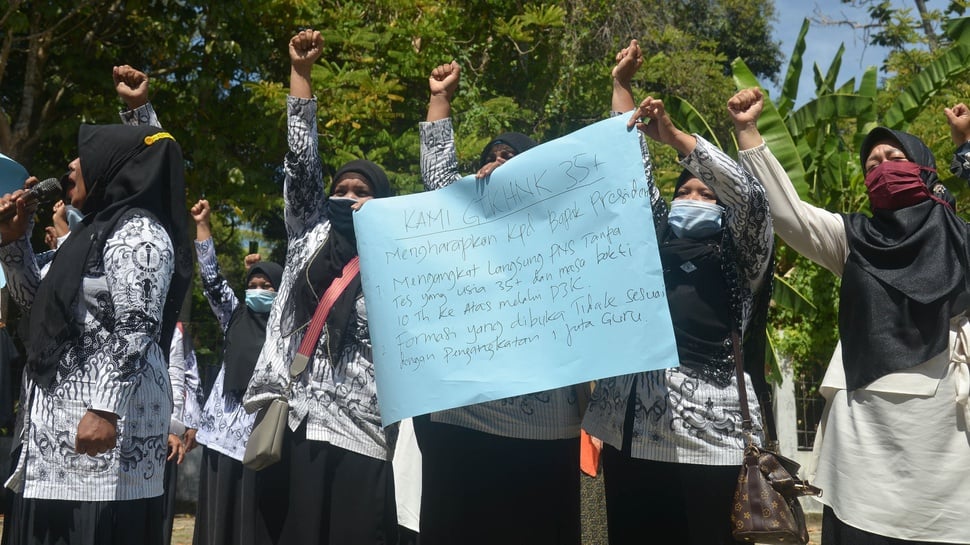 KAMI GTKHNK 35+
Mengharapkan Kpd Bapak Presiden
1. Mengangkat Langsung PNS Tanpa
Tes yang usia 35+ dan masa bakti
10 Th ke Atas melalui P3K.
2. Formasi yang dibuka Tidak Sesuai
dengan Pengangkatan 1 Juta Guru.